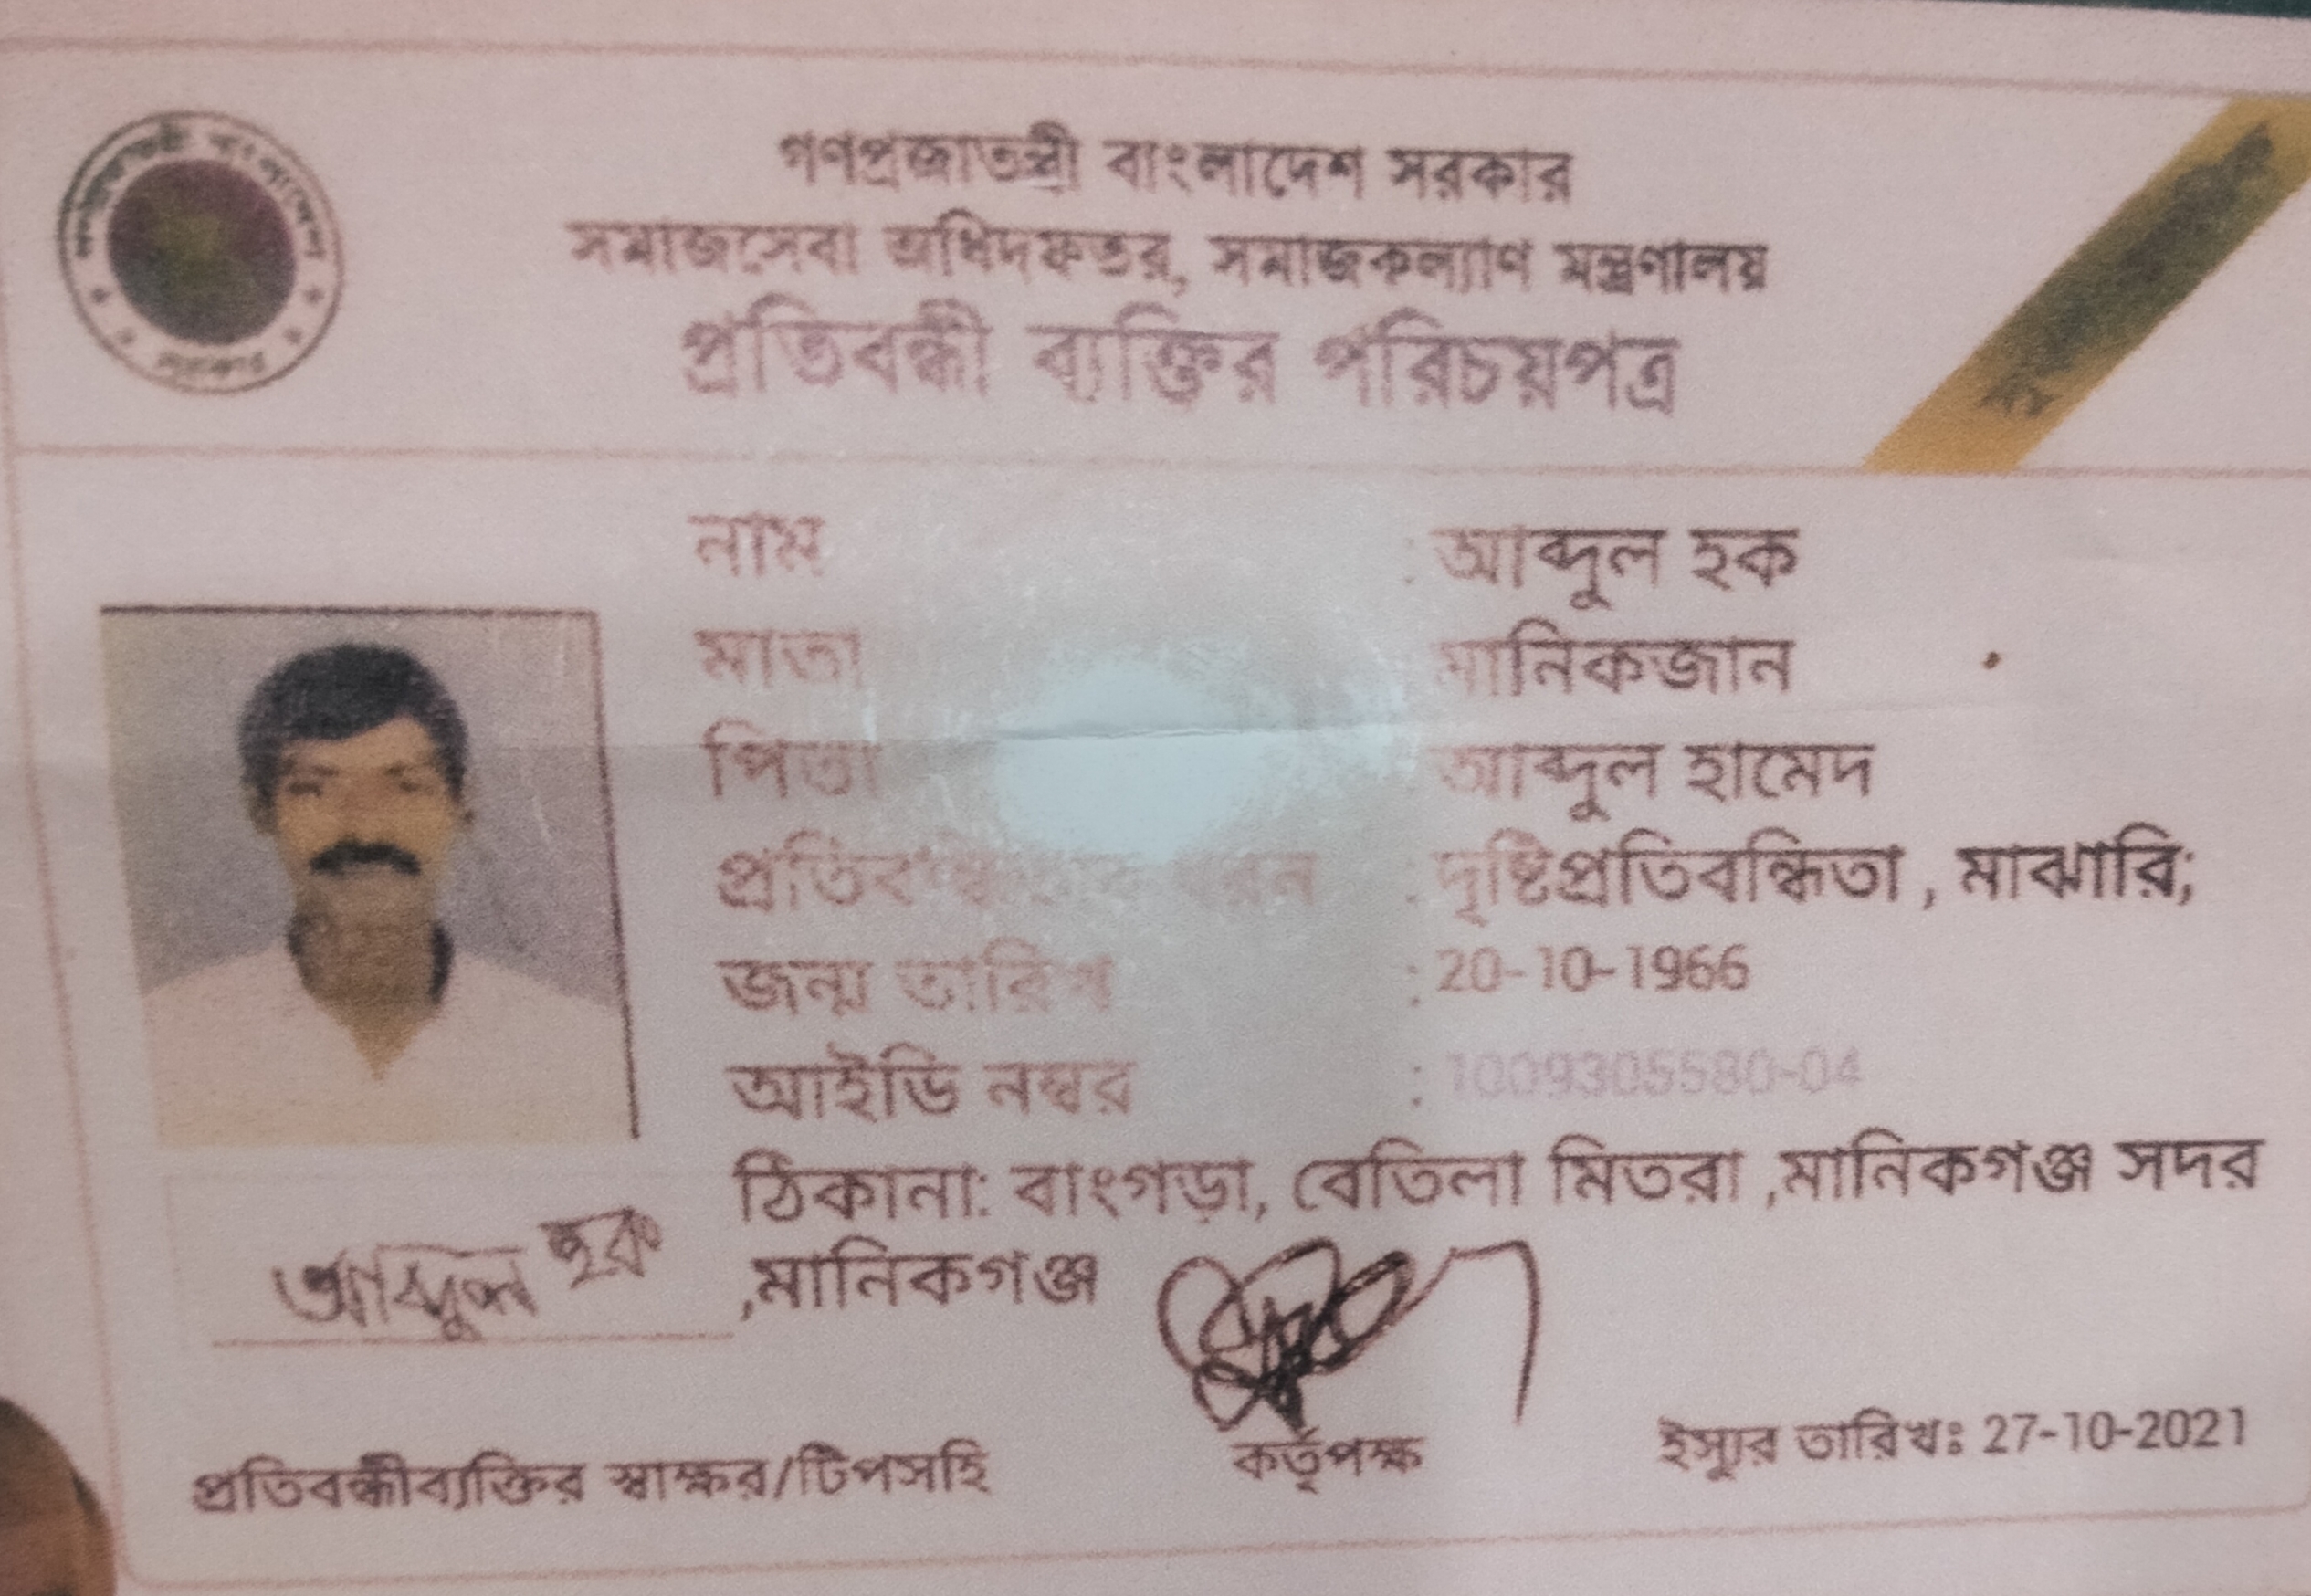 গণপ্রজাতন্ত্রী বাংলাদেশ সরকার
সমাজসেবা অধিদফতর, সমাজকল্যাণ মন্ত্রণালয়
প্রতিবন্ধী ব্যক্তির পরিচয়পত্র
নাম : আব্দুল হক
মাতা মানিকজান
পিতা আব্দুল হামেদ
প্রতিবন্ধিতার ধরন : দৃষ্টিপ্রতিবন্ধিতা , মাঝারি;
জন্ম তারিখ : 20-10-1966
আইডি নম্বর : 1009305580-04
ঠিকানা: বাংগড়া, বেতিলা মিতরা ,মানিকগঞ্জ সদর
,মানিকগঞ্জ
আব্দুল হক
প্রতিবন্ধীব্যক্তির স্বাক্ষর/টিপসহি
কর্তৃপক্ষ
ইস্যুর তারিখঃ 27-10-2021